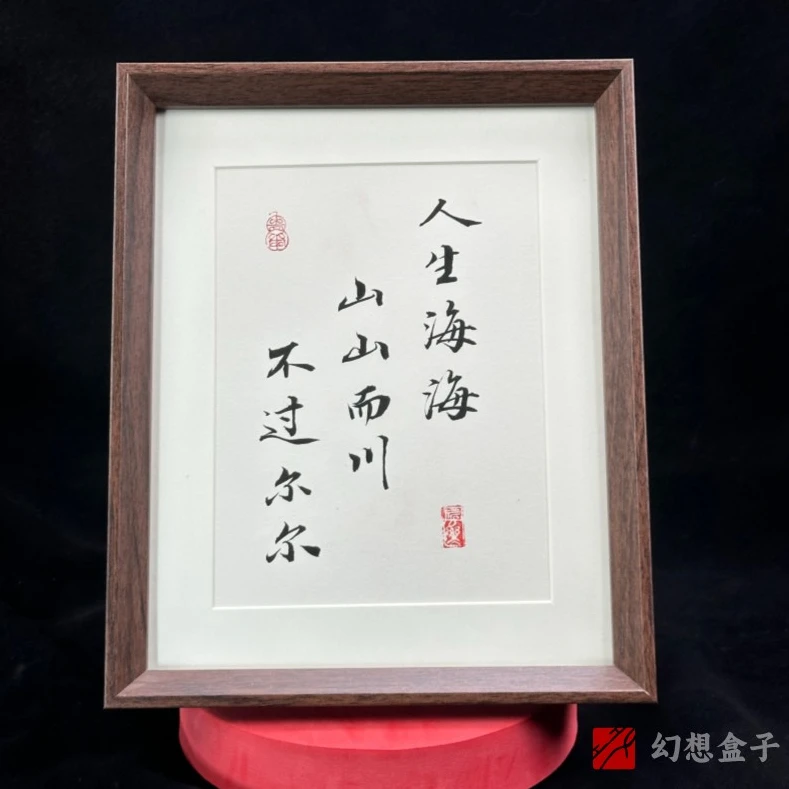 人生海海
山山而川
不过尔尔
幻想盒子